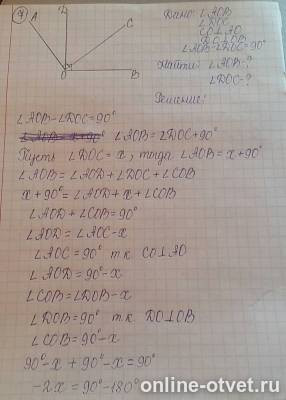 7
A
D
C
O
B
Дано: ∠AOB
∠DOC
CO⊥AO
DO⊥OB
∠AOB-∠DOC=90°
Найти: ∠AOB-?
∠DOC-?
Решение:
∠AOB-∠DOC=90°
∠AOB=∠DOC+90°
Пусть ∠DOC=x, тогда ∠AOB=x+90°
∠AOB=∠AOD+∠DOC+∠COB
x+90°=∠AOD+x+∠COB
∠AOD+∠COB=90°
∠AOD=∠AOC-x
∠AOC=90° т.к CO⊥AO
∠AOD=90°-x
∠COB=∠DOB-x
∠DOB=90° т.к DO⊥OB
∠COB=90°-x
90°-x+90°-x=90°
-2x=90°-180°
online-otvet.ru